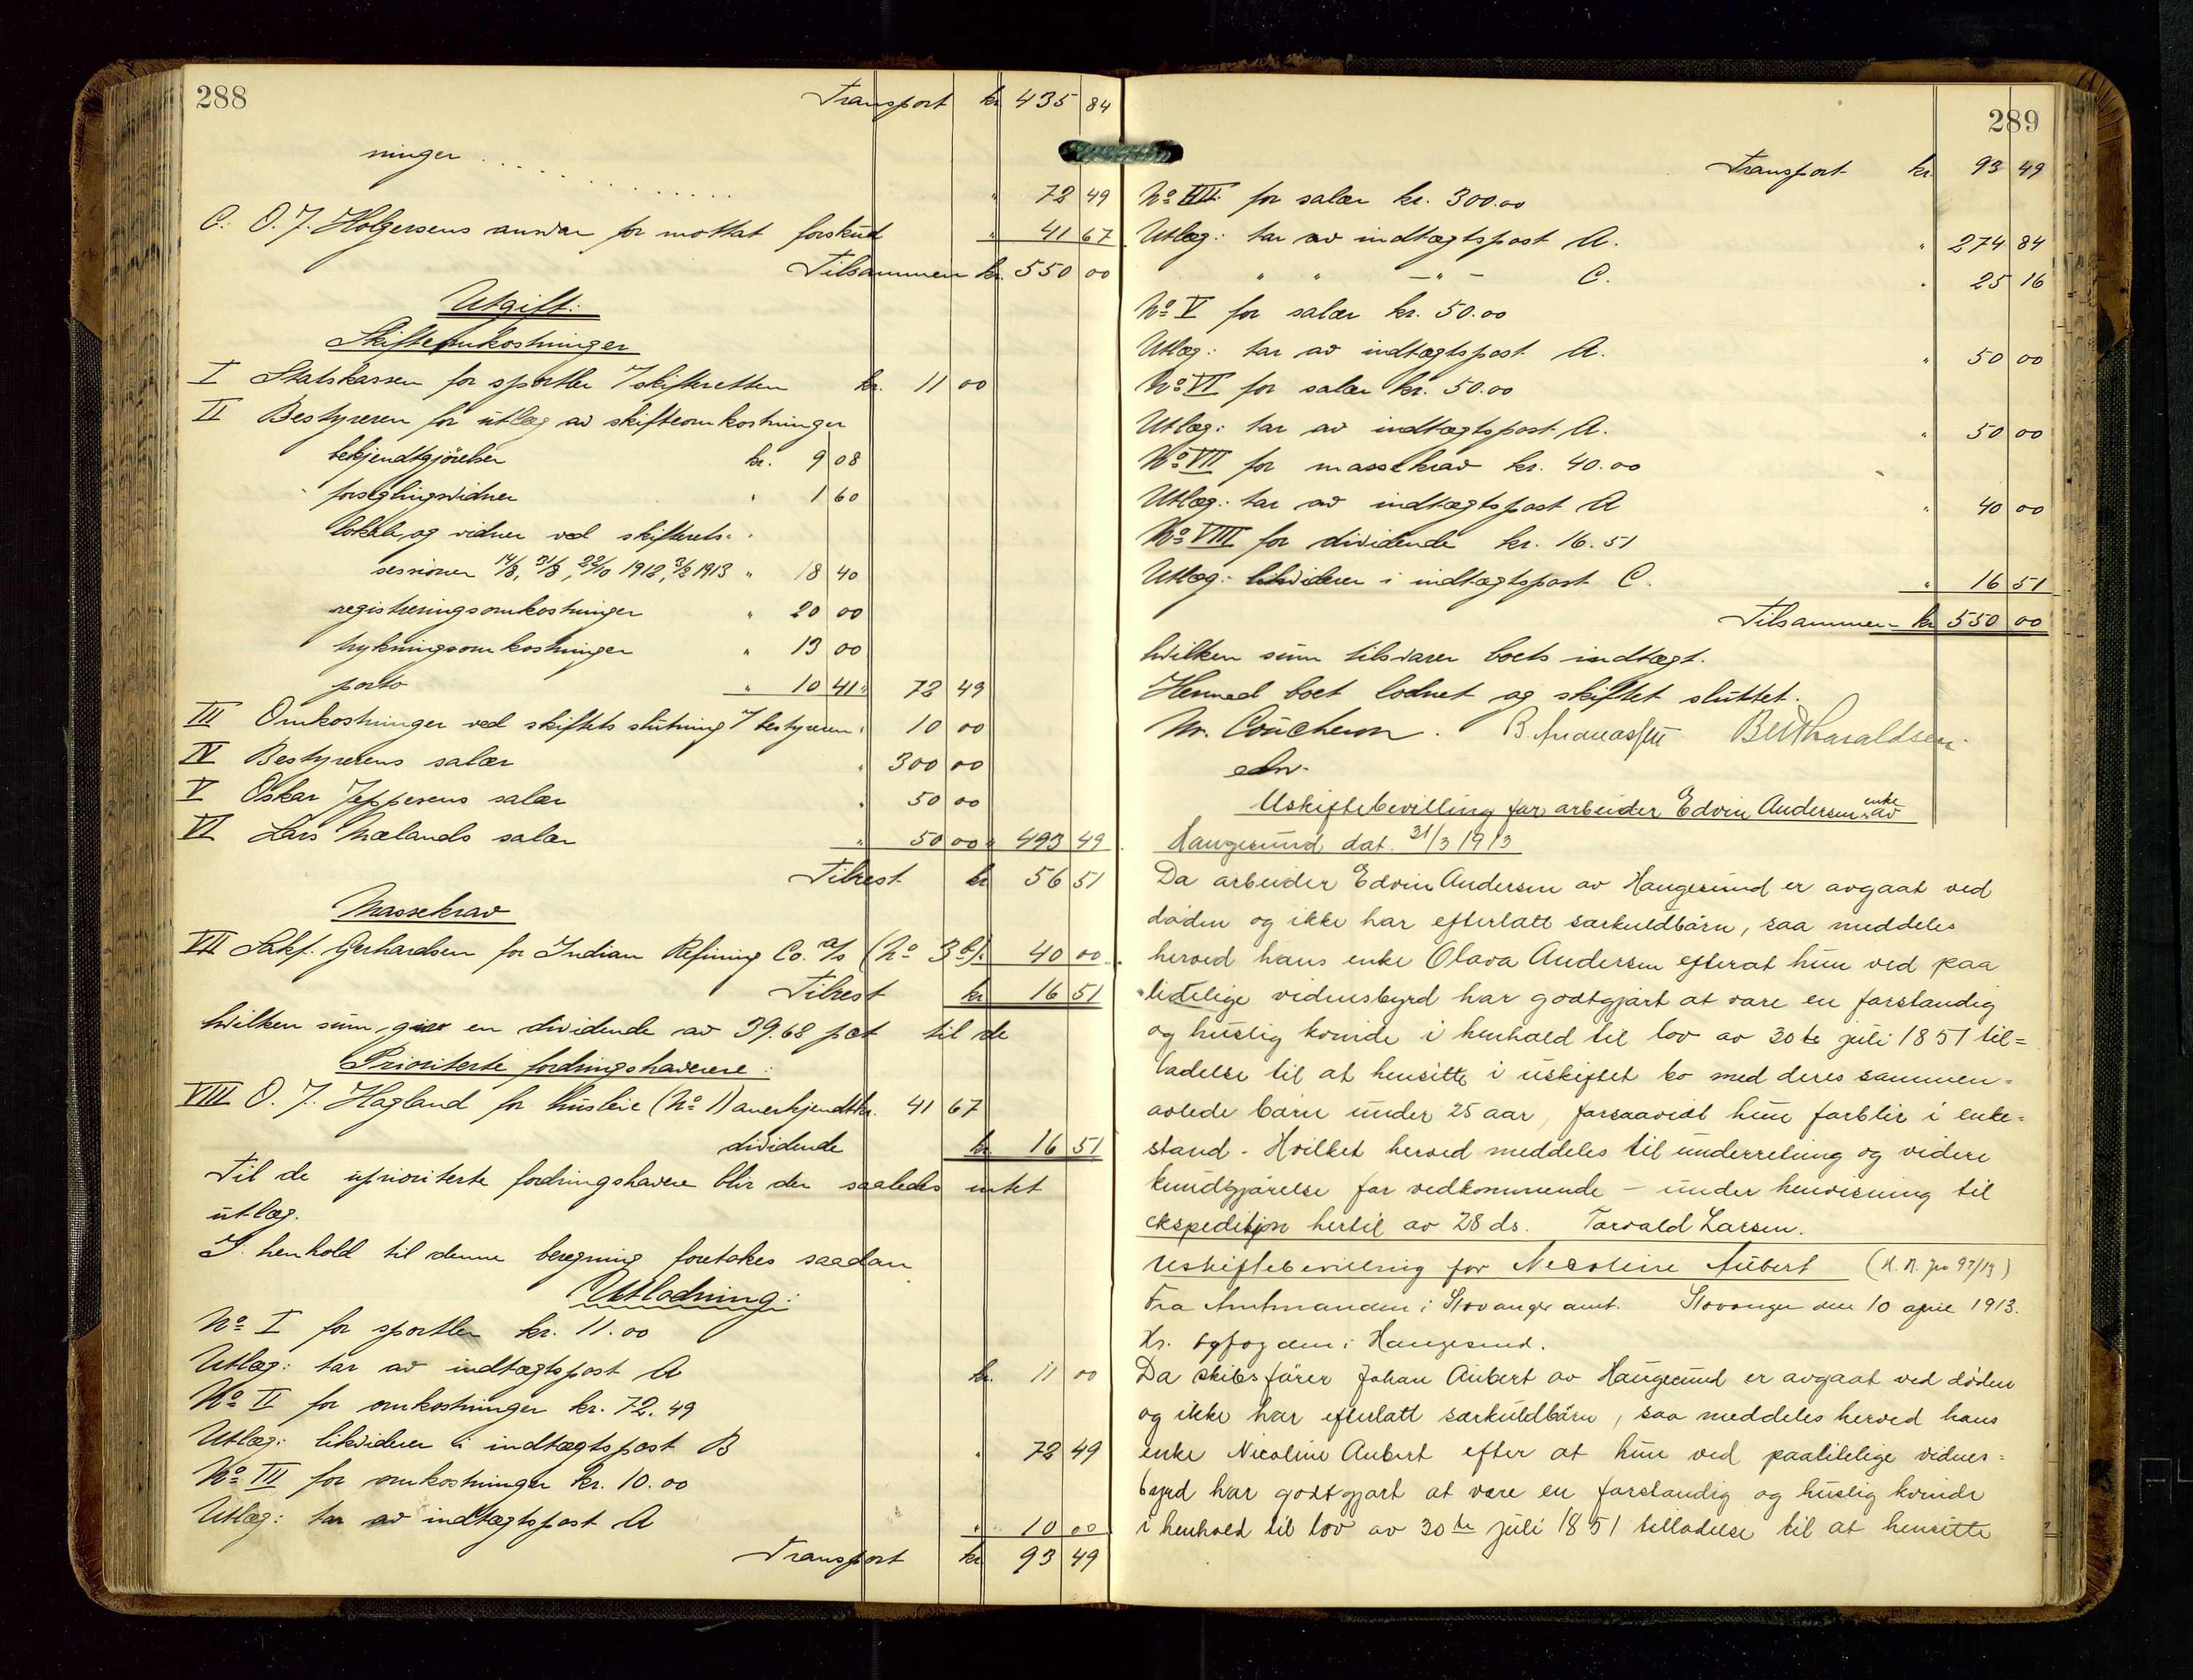 288
Transport kr 435 84
ninger . . . . . . . . . . " 72 49
C. O. J. Holgersens ansvar for mottat forskud " 41 67
Tilsammen kr. 550 00
Utgift:
Skifteomkostninger
I Statskassen for sportler i skifteretten kr. 11 00
II Bestyreren for utlæg av skifteomkostninger
bekjendtgjörelser kr. 9 08
forseglingsvidner " 1 60
lokale og vidner ved skifterets-
sessioner 14/8, 31/8, 22/10 1912, 3/2 1913 " 18 40
registreringsomkostninger " 20 00
trykningsomkostninger " 13 00
porto " 10 41 " 72 49
III Omkostninger ved skiftets slutning / bestyreren " 10 00
IV Bestyrerens salær " 300 00
V Oskar Jeppesens salær " 50 00
VI Lars Mælands salær " 50 00 " 493 49
Tilrest kr 56 51
Massekrav
VII Sakf. Gerhardsen for Indian Refining Co. A/s (No 3b). 40 00
Tilrest kr 16 51
hvilken sum giver en dividende av 39.68 pct til de
Prioriterte fordringshavere:
VIII O. J. Hagland for husleie (No 1) anerkjendt kr. 41 67
dividende kr 16 51
Til de uprioriterte fordringshavere blir der saaledes intet
utlæg.
I henhold til denne beregning foretakes saadan
Utlodning:
No I for sportler kr. 11.00
Utlæg: tar av indtægtspost A kr. 11 00
No II for omkostninger kr. 72.49
Utlæg: likviderer i indtægtspost B " 72 49
No III for omkostninger kr. 10.00
Utlæg: tar av indtægtspost A " 10 00
Transport kr 93 49
289
Transport kr. 93 49
No IIII: for salær kr. 300.00
Utlæg: tar av indtægtspost A. " 274 84
" " — " — C. " 25 16
No V for salær kr. 50.00
Utlæg: tar av indtægtspost A. " 50 00
No VI for salær kr. 50.00
Utlæg: tar av indtægtspost A. " 50 00
No VII for massekrav kr. 40.00
Utlæg: tar av indtægtspost A " 40 00
No VIII for dividende kr. 16.51
Utlæg: likviderer i indtægtspost C. " 16 51
Tilsammen kr 550 00
hvilken sum tilsvarer boets indtægt.
Hermed boet lodnet og skiftet sluttet.
M. Coucheron. B. Andreassen Bertharaldsen
edv.
Uskiftebevilling for arbeider Edvin Andersens enke av
Haugesund dat. 31/3 1913
Da arbeider Edvin Andersen av Haugesund er avgaat ved
döden og ikke har efterlatt særkuldbörn, saa meddeles
herved hans enke Olava Andersen efterat hun ved paa
lidelige vidnesbyrd har godtgjort at være en forstandig
og huslig kvinde i henhold til lov av 30te juli 1851 til=
ladelse til at hensitte i uskiftet bo med deres sammen=
avlede börn under 25 aar, forsaavidt hun forblir i enke=
stand. Hvilket herved meddeles til underretning og videre
kundgjörelse for vedkommende – under henvisning til
ekspedisjon hertil av 28 ds. Torvald Larsen.
Uskiftebevilling for Nicoline Aubert (H. R. jn 97/13)
Fra Amtmanden i Stavanger amt. Stavanger den 10 april 1913.
Hr. byfogden i Haugesund.
Da skibsförer Johan Aubert av Haugesund er avgaat ved döden
og ikke har efterlatt særkuldbörn, saa meddeles herved hans
enke Nicoline Aubert efter at hun ved paalitelige vidnes=
byrd har godtgjort at være en forstandig og huslig kvinde
i henhold til lov av 30te juli 1851 tilladelse til at hensitte